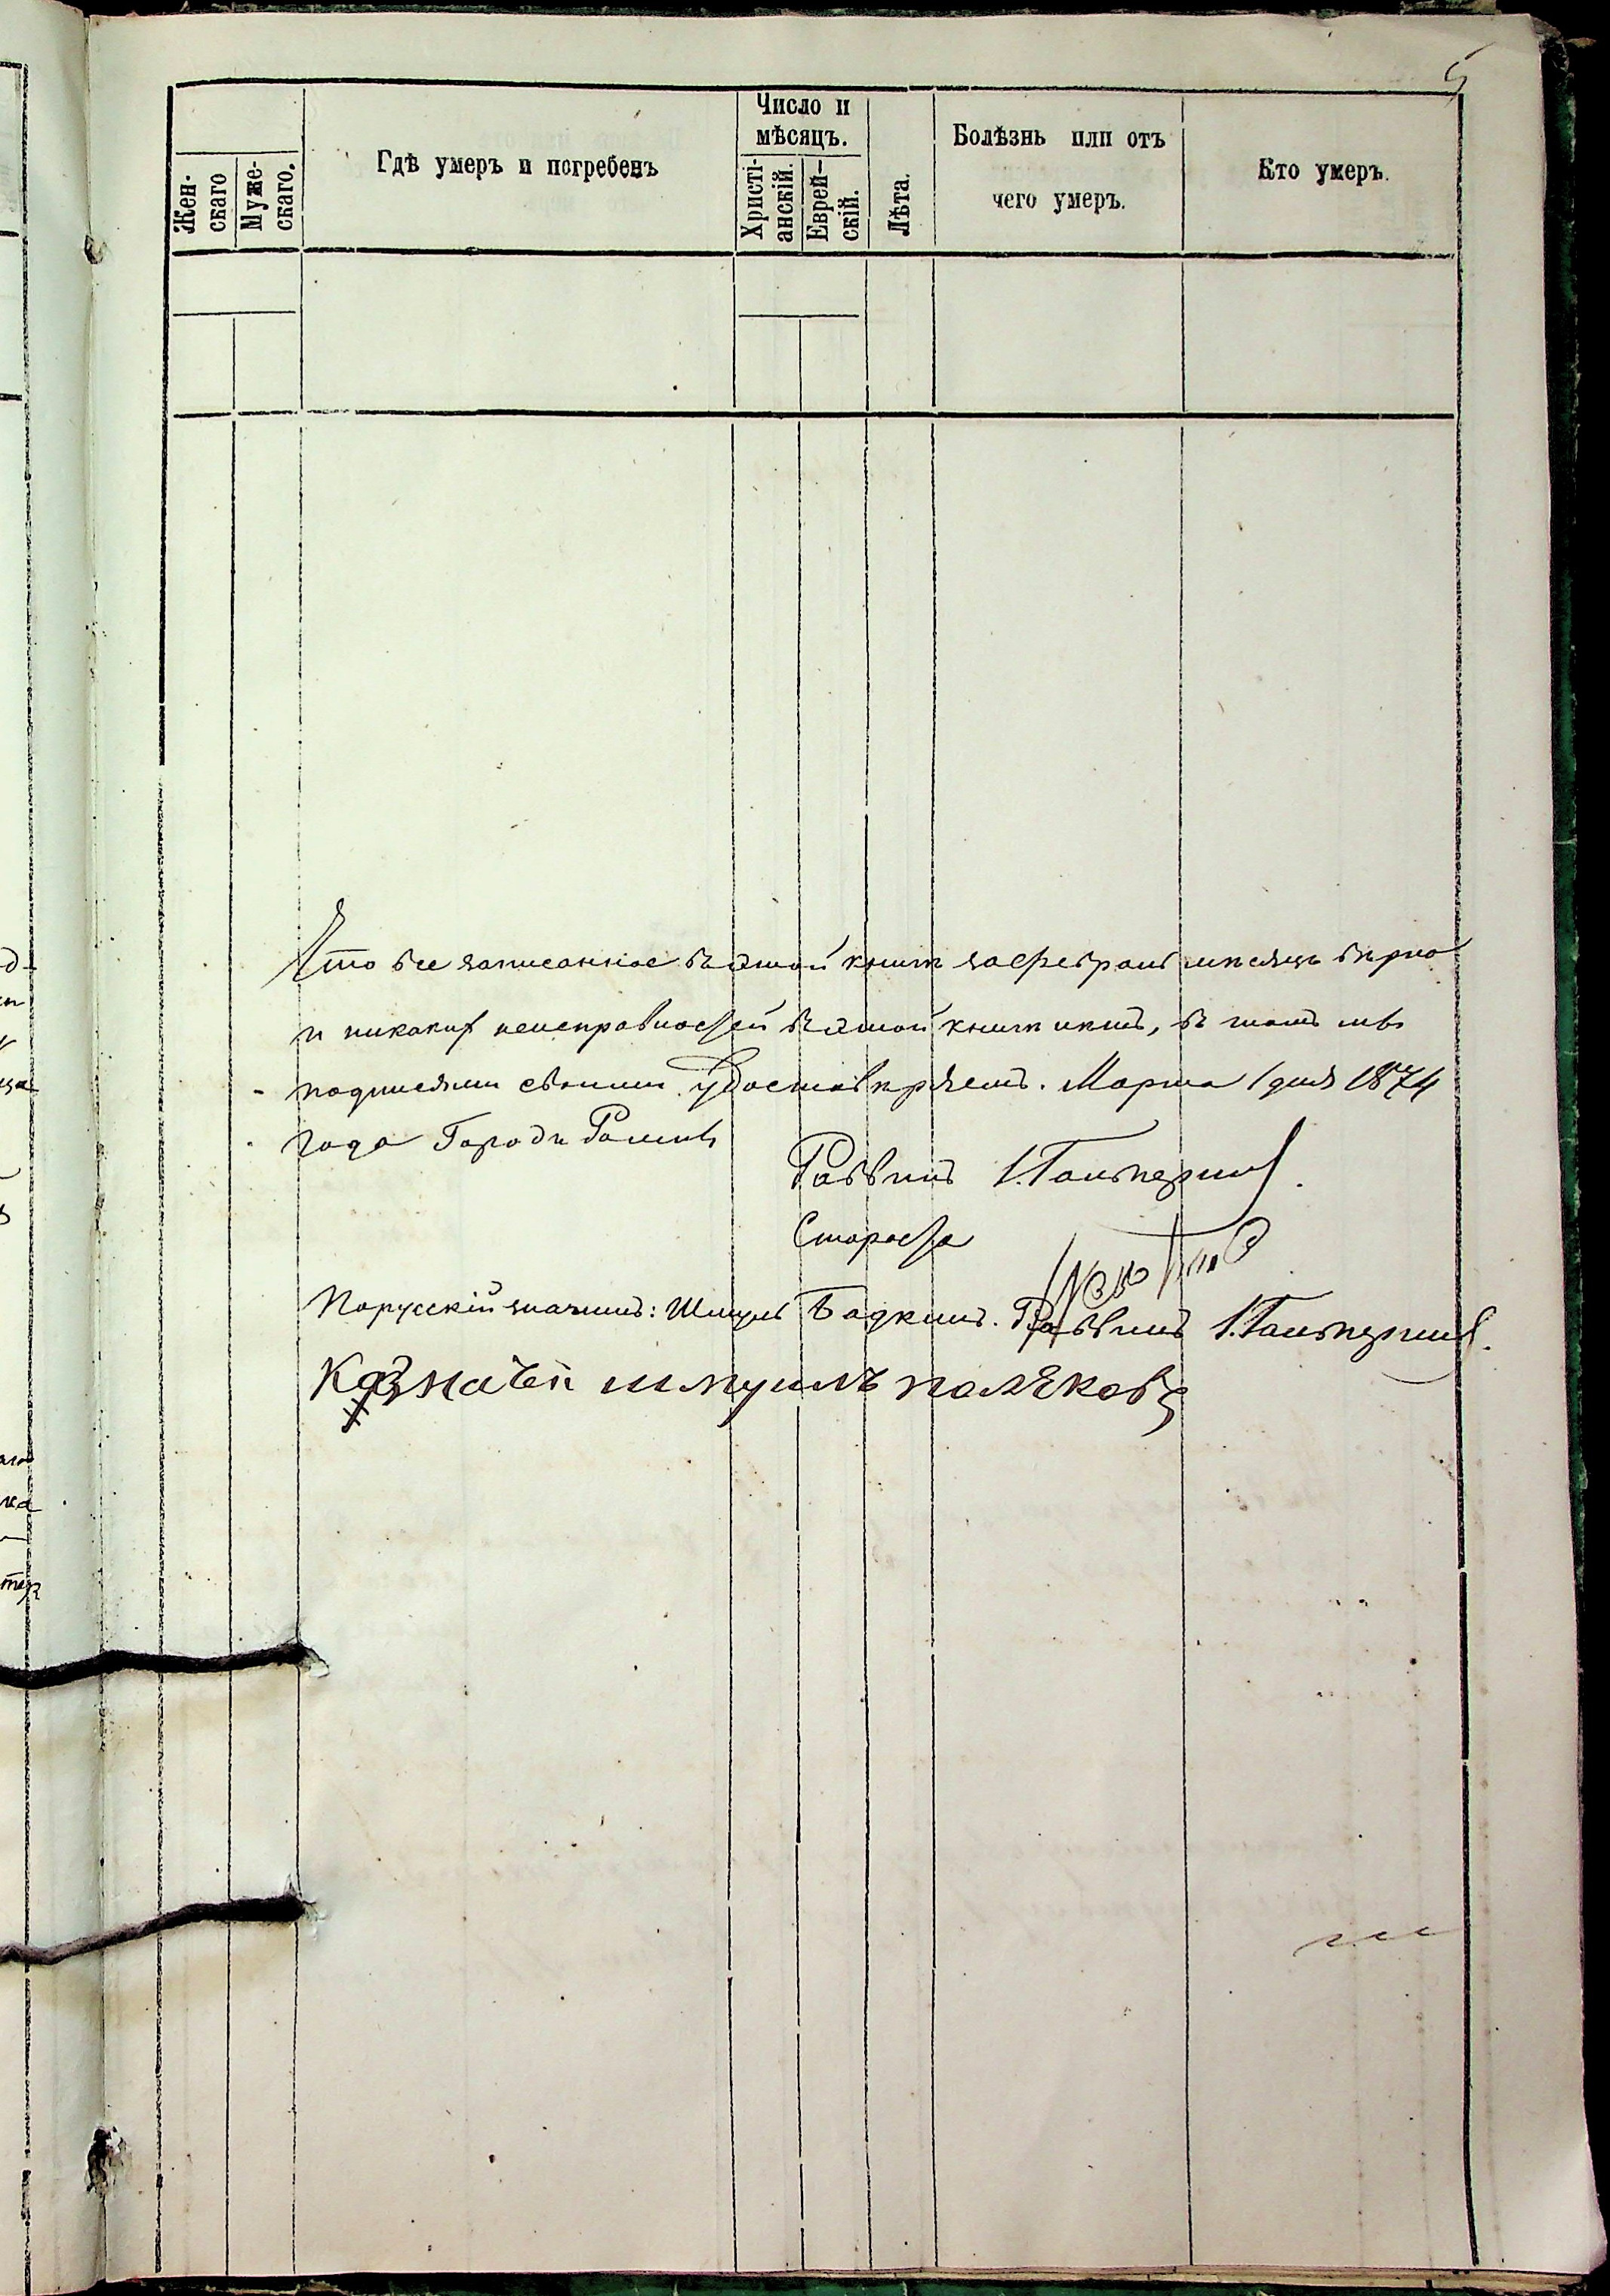 5
Жен-
скаго
Муже-
скаго.
Гдѣ умеръ и погребенъ
Число и
мѣсяцъ.
Христі-
анскій.
Еврей-
скій.
Лѣта.
Болѣзнь или отъ
чего умеръ.
Кто умеръ.
Что все записанное въ этой книгѣ за февраль мѣсяцъ вѣрно
и никакихъ неисправностей въ этой книгѣ нѣтъ, въ томъ мы
подписями своими удостовѣряемъ. Марта 1 дня 1874
года Городъ Ромны
Раввинъ І. Гальперинъ.
Староста
По русскій значитъ: Шмуль Бадкинъ. Раввинъ І. Гальперинъ.
Казначеи шмуиль поляковъ